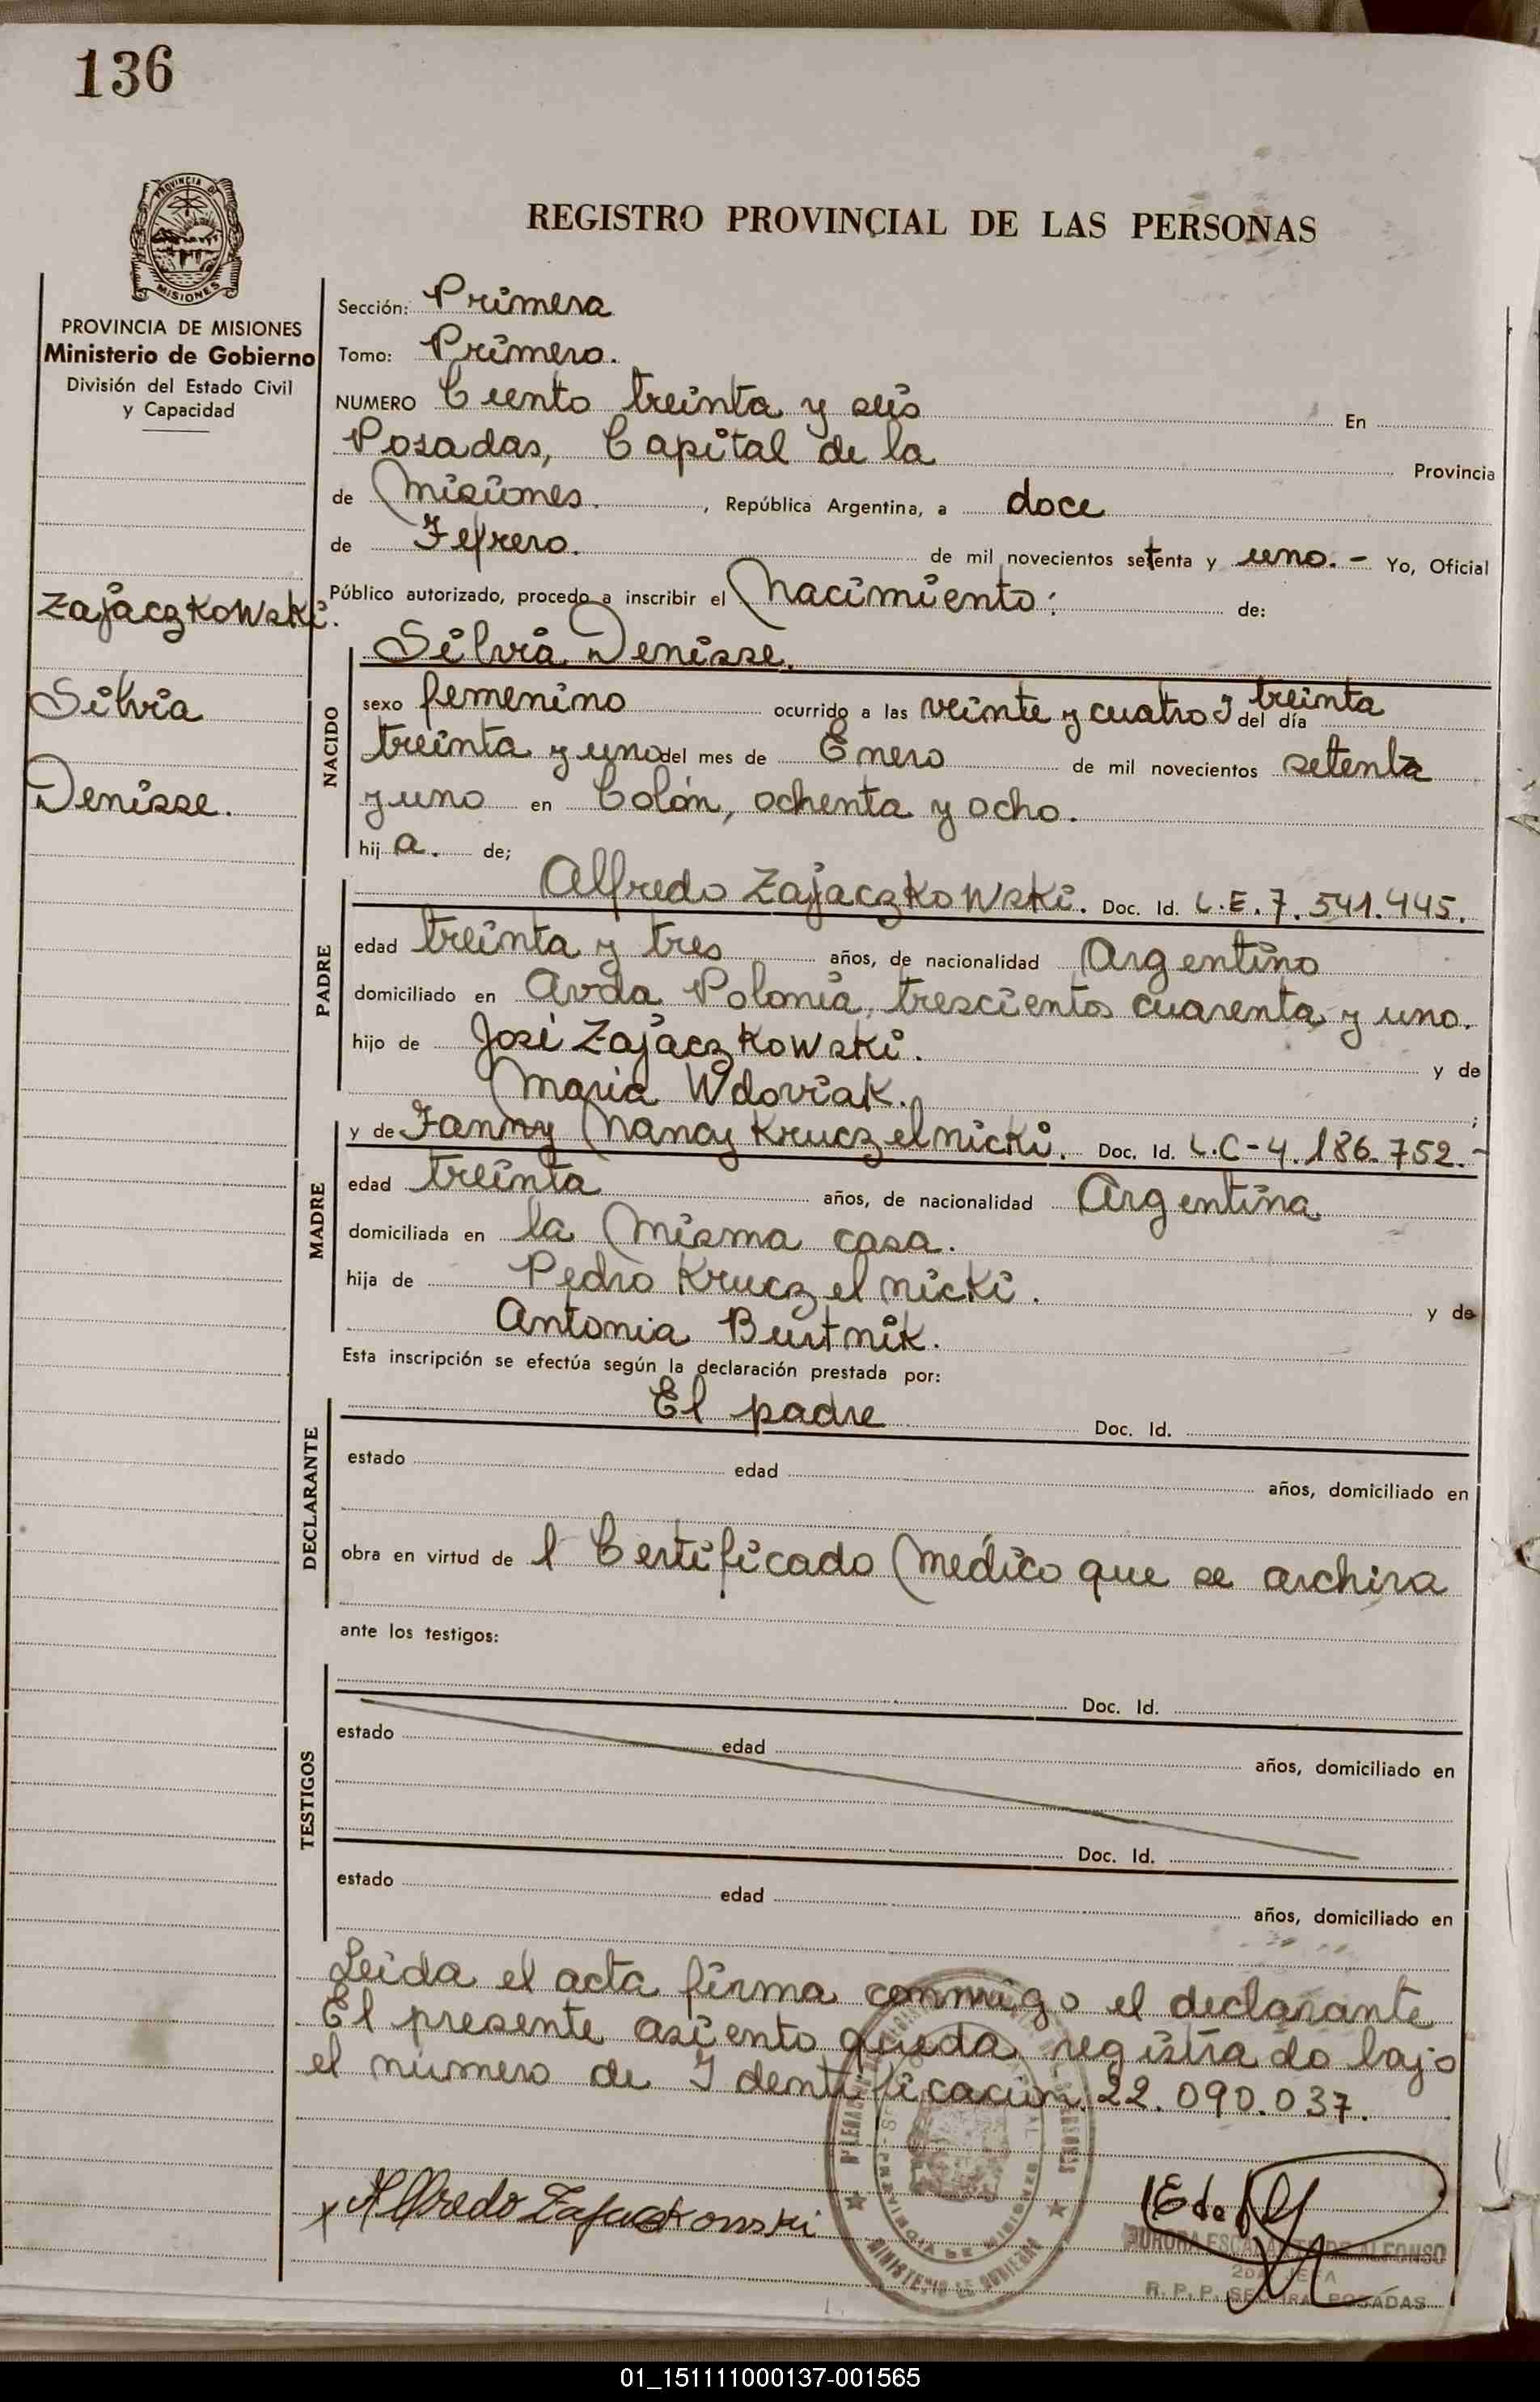 136
PROVINCIA DE MISIONES
REGISTRO PROVINCIAL DE LAS PERSONAS
PROVINCIA DE MISIONES
Ministerio de Gobierno
División del Estado Civil
y Capacidad
Zajaczkowski.
Silvia
Denisse.
Sección: Primera
Tomo: Primero.
NUMERO Ciento treinta y seis En
Posadas, Capital de la Provincia
de Misiones. , República Argentina, a doce
de Febrero. de mil novecientos setenta y uno. - Yo, Oficial
Público autorizado, procedo a inscribir el Nacimiento: de:
NACIDO
Silvia Denisse.
sexo femenino ocurrido a las veinte y cuatro y treinta del día
treinta y uno del mes de Enero de mil novecientos setenta
y uno en Colón, ochenta y ocho.
hij a. de;
PADRE
Alfredo Zajaczkowski. Doc. Id. L.E. 7. 541.445.
edad treinta y tres años, de nacionalidad Argentino
domiciliado en Avda Polonia, trescientos cuarenta y uno.
hijo de José Zajaczkowski. y de
Maria Wdoviak. ;
MADRE
y de Fanny Nancy Kruczelnicki. Doc. Id. L.C-4.186.752.-
edad treinta años, de nacionalidad Argentina
domiciliada en la misma casa.
hija de Pedro Kruczelnicki. y de
Antonia Burtnik.
Esta inscripción se efectúa según la declaración prestada por:
DECLARANTE
El padre Doc. Id.
estado edad años, domiciliado en
obra en virtud de l Certificado Médico que se archiva
ante los testigos:
TESTIGOS
Doc. Id.
estado edad años, domiciliado en
Doc. Id.
estado edad años, domiciliado en
Leida el acta firma conmigo el declarante
El presente asiento queda registrado bajo
el número de Identificación 22.090.037.
x Alfredo Zajaczkowski
PROVINCIA DE MISIONES
MINISTERIO DE GOBIERNO
AURORA ESCALANTE DE ALFONSO
2DA JEFA
R. P. P. SEC 1RA POSADAS
01_151111000137-001565